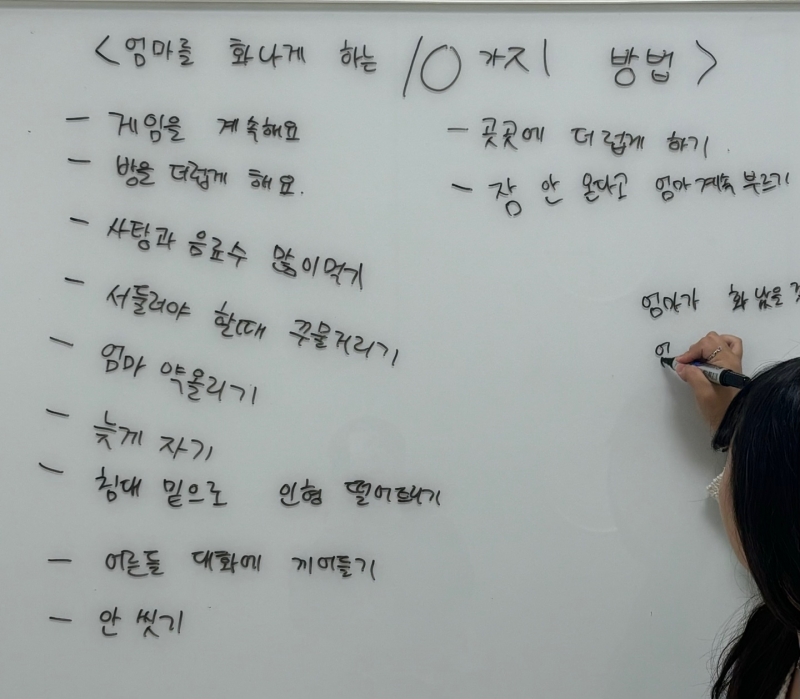 <엄마를 화나게 하는 10가지 방법>
- 게임을 계속해요
- 방을 더럽게 해요.
- 사탕과 음료수 많이먹기
- 서둘러야 할때 꾸물거리기
- 엄마 약올리기
- 늦게 자기
- 침대 밑으로 인형 떨어뜨리기
- 어른들 대화에 끼어들기
- 안 씻기
- 곳곳에 더럽게 하기.
- 잠 안 온다고 엄마계속부르기
엄마가 화 났을